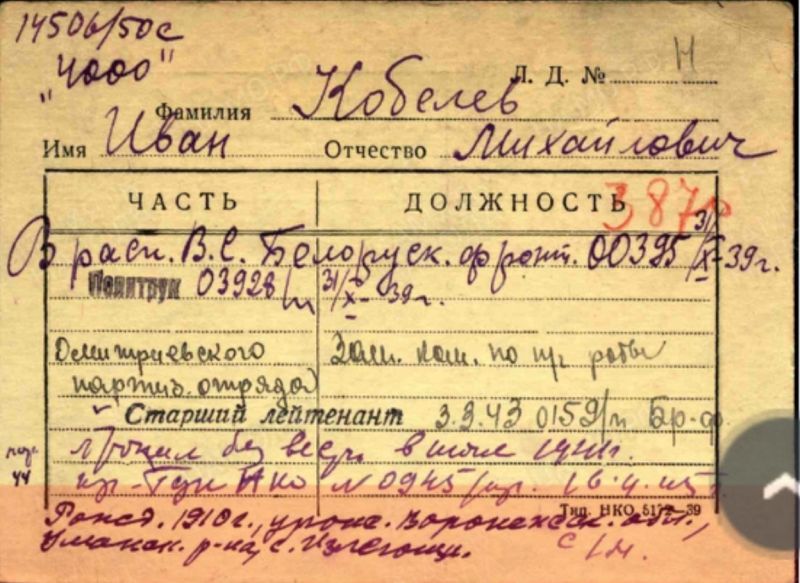 14506/50с
"4000"
Л. Д. № Н
Фамилия Кобелев
Имя Иван Отчество Михайлович
ЧАСТЬ ДОЛЖНОСТЬ
387
В расп. В.С. Белоруск. фронт. 00395/ 31/X-39г.
Политрук 03928/п 31/X-39г.
Дмитриевского Зам. ком. по
партиз. отряда
Старший лейтенант 3.3.43 0159/п Бр-ф.
Пропал без вести в 1941г.
пр. ГУК НКО №0945/ 16.4.
44
Тип. НКО 5172—39
Рожд. 1910г., урож. Воронежск. обл.,
р-на, с.